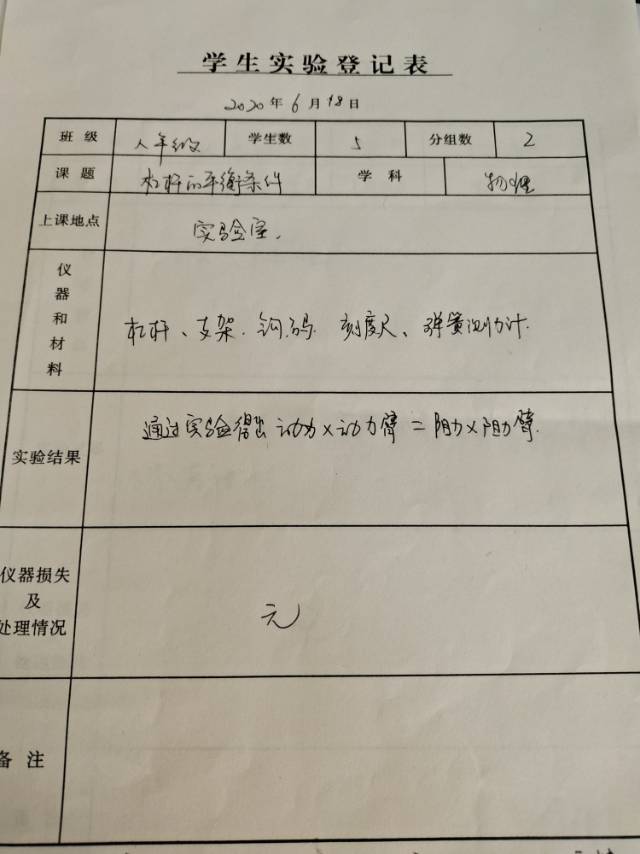 学生实验登记表
2020年6月18日
班级 八年级 学生数 5 分组数 2
课题 杠杆的平衡条件 学科 物理
上课地点 实验室.
仪器和材料 杠杆、支架.钩码.刻度尺、弹簧测力计.
实验结果 通过实验得出动力×动力臂=阻力×阻力臂.
仪器损失及处理情况 无
备注